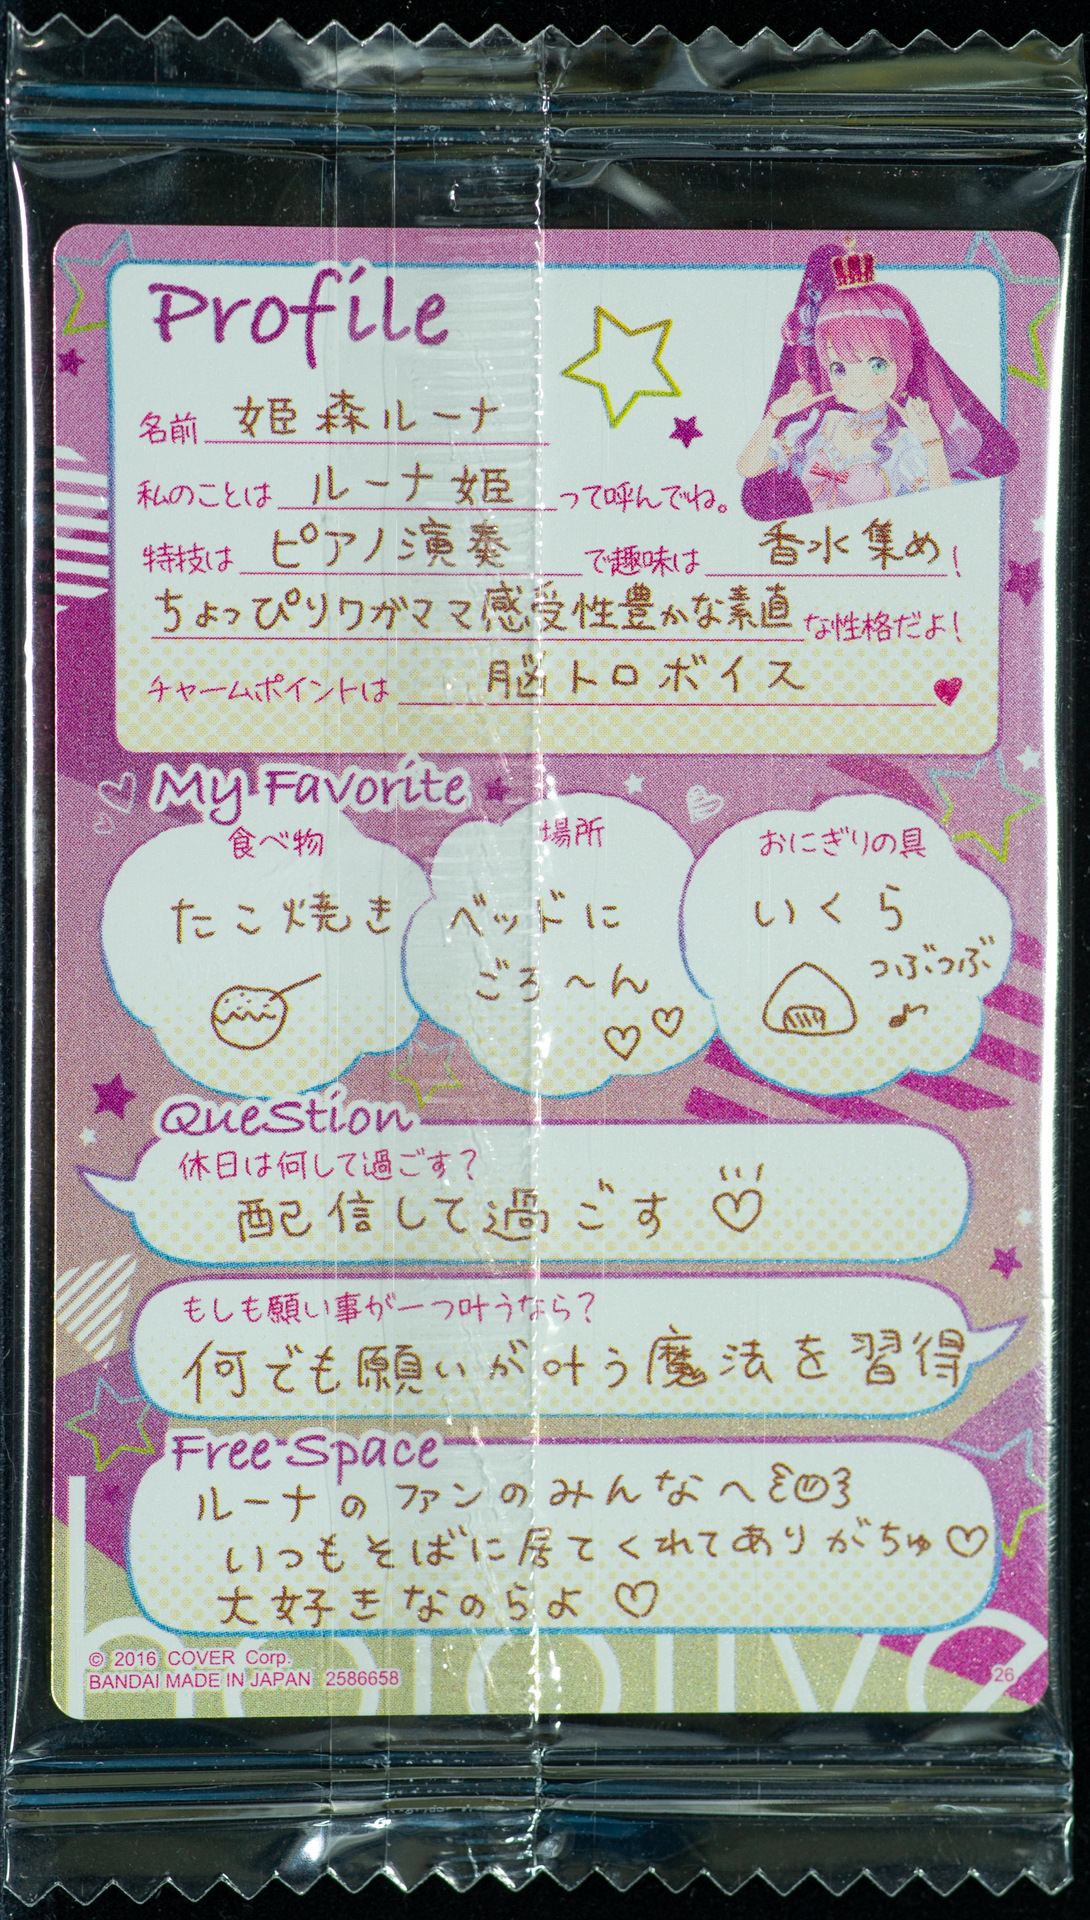 Profile
名前 姫森ルーナ
私のことは ルーナ姫 って呼んでね。
特技は ピアノ演奏 で趣味は 香水集め !
ちょっぴりワガママ感受性豊かな素直 な性格だよ!
チャームポイントは 脳トロボイス
My Favorite
食べ物
たこ焼き
場所
ベッドに
ごろ〜ん
おにぎりの具
いくら
つぶつぶ
Question
休日は何して過ごす?
配信して過ごす
もしも願い事が一つ叶うなら?
何でも願いが叶う魔法を習得
Free Space
ルーナのファンのみんなへ
いつもそばに居てくれてありがちゅ♡
大好きなのらよ♡
hololive
© 2016 COVER Corp.
BANDAI MADE IN JAPAN 2586658
26